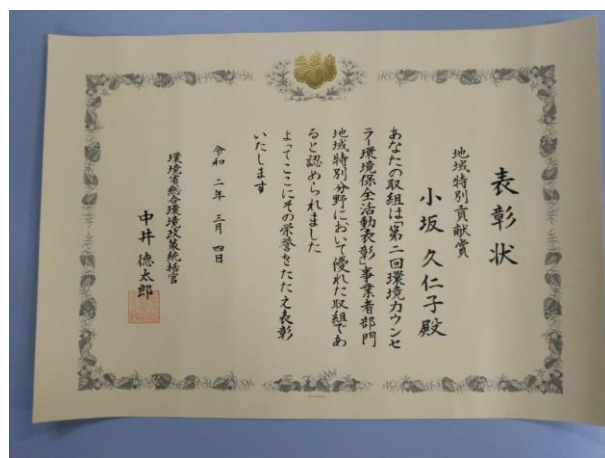 表彰状
地域特別貢献賞
小坂 久仁子 殿
あなたの取組は「第二回環境カウンセ
ラー環境保全活動表彰」事業者部門
地域特別分野において優れた取組であ
ると認められました
よってここにその栄誉をたたえ表彰
いたします
令和 二年 三月 四日
環境省総合環境政策統括官
中井 德太郎